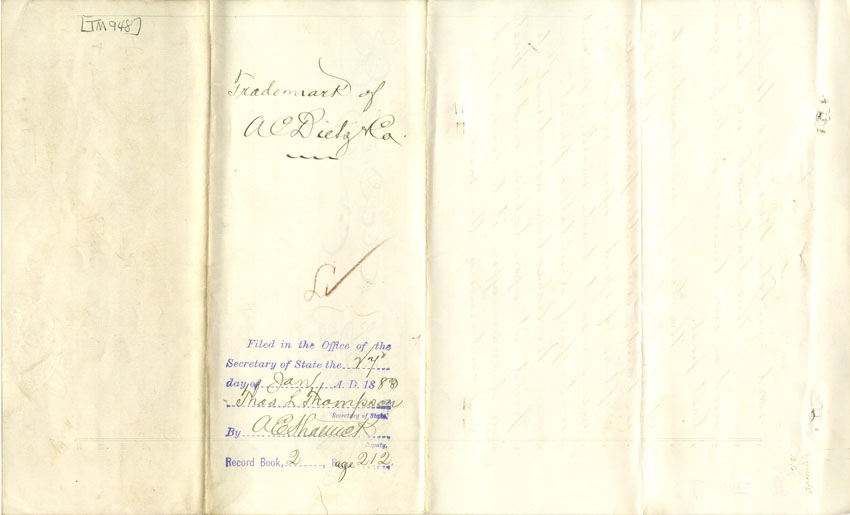 [TM 948]
Trademark of
A C Dietz & Co.
Filed in the Office of the
Secretary of State the 24th
day of Jan A. D. 1883
Thos L. Thompson
Secretary of State.
By A E Shattuck
Deputy.
Record Book, 2, Page 212.